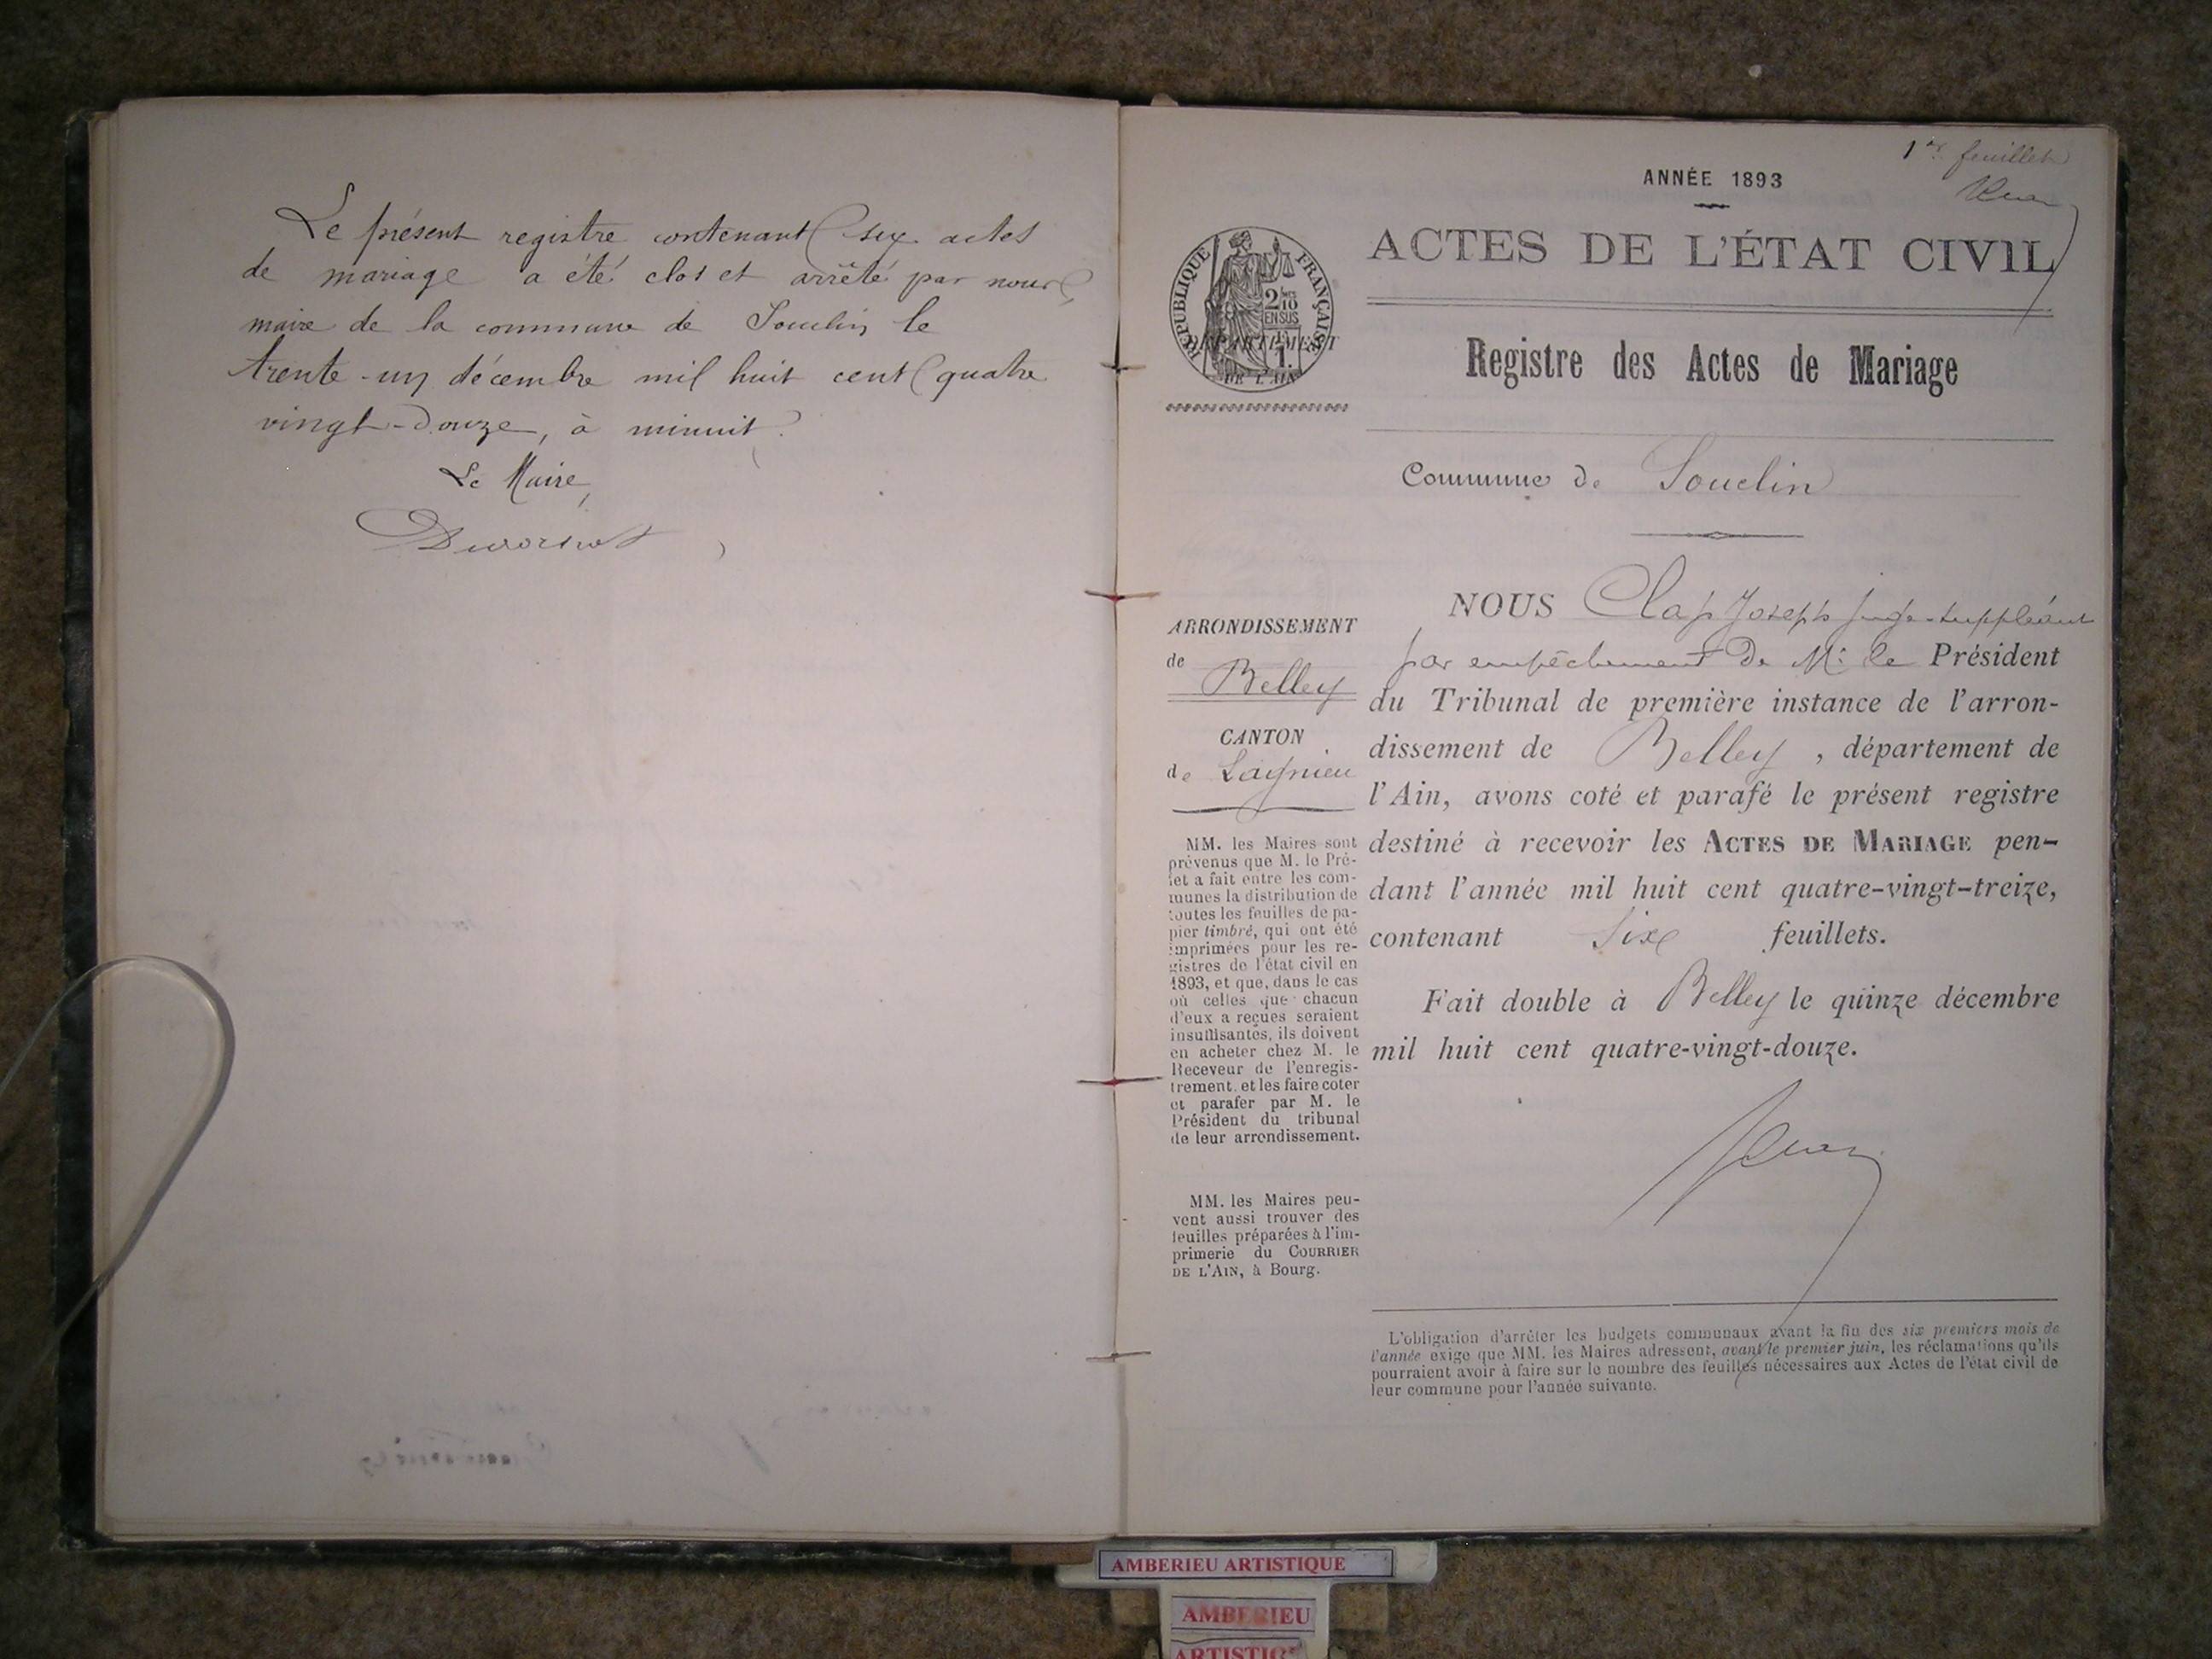 Le présent registre contenant six actes
de mariage a été clos et arrêté par nous
maire de la commune de Souclin le
trente-un décembre mil huit cent quatre
vingt-douze, à minuit.
Le Maire,
1er feuillet
ANNÉE 1893
ACTES DE L'ÉTAT CIVIL
RÉPUBLIQUE FRANÇAISE
2 MES
10
EN SUS
DÉPARTEMENT
DE L'AIN
Registre des Actes de Mariage
Commune de Souclin
ARRONDISSEMENT
de
Belley
CANTON
de Lagnieu
MM. les Maires sont
prévenus que M. le Pré-
fet a fait entre les com-
munes la distribution de
toutes les feuilles de pa-
pier timbré, qui ont été
imprimées pour les re-
gistres de l'état civil en
1893, et que, dans le cas
où celles que chacun
d'eux a reçues seraient
insuffisantes, ils doivent
en acheter chez M. le
Receveur de l'enregis-
trement, et les faire coter
et parafer par M. le
Président du tribunal
de leur arrondissement.
MM. les Maires peu-
vent aussi trouver des
feuilles préparées à l'im-
primerie du COURRIER
DE L'AIN, à Bourg.
NOUS Clap Joseph juge-suppléant
par empêchement de Mr le Président
du Tribunal de première instance de l'arron-
dissement de Belley, département de
l'Ain, avons coté et parafé le présent registre
destiné à recevoir les ACTES DE MARIAGE pen-
dant l'année mil huit cent quatre-vingt-treize,
contenant six feuillets.
Fait double à Belley le quinze décembre
mil huit cent quatre-vingt-douze.
L'obligation d'arrêter les budgets communaux avant la fin des six premiers mois de
l'année exige que MM. les Maires adressent, avant le premier juin, les réclamations qu'ils
pourraient avoir à faire sur le nombre des feuilles nécessaires aux Actes de l'état civil de
leur commune pour l'année suivante.
AMBERIEU ARTISTIQUE
AMBERIEU
ARTISTIQ